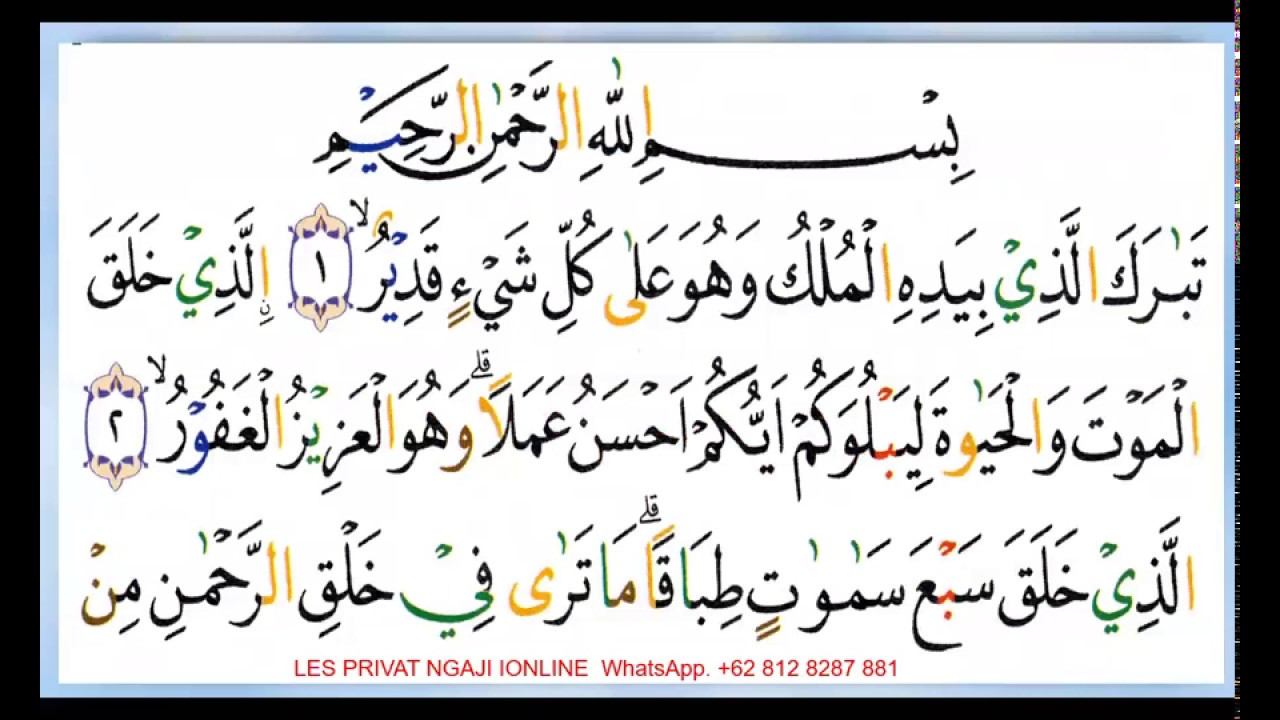 بِسْــــمِ اللّٰهِ الرَّحْمٰنِ الرَّحِيْمِ
تَبٰرَكَ الَّذِيْ بِيَدِهِ الْمُلْكُ وَهُوَ عَلٰى كُلِّ شَيْءٍ قَدِيْرٌۙ ١ ۨالَّذِيْ خَلَقَ
الْمَوْتَ وَالْحَيٰوةَ لِيَبْلُوَكُمْ اَيُّكُمْ اَحْسَنُ عَمَلًاۗ وَهُوَ الْعَزِيْزُ الْغَفُوْرُۙ ٢
الَّذِيْ خَلَقَ سَبْعَ سَمٰوٰتٍ طِبَاقًاۗ مَا تَرٰى فِيْ خَلْقِ الرَّحْمٰنِ مِنْ
LES PRIVAT NGAJI IONLINE WhatsApp. +62 812 8287 881